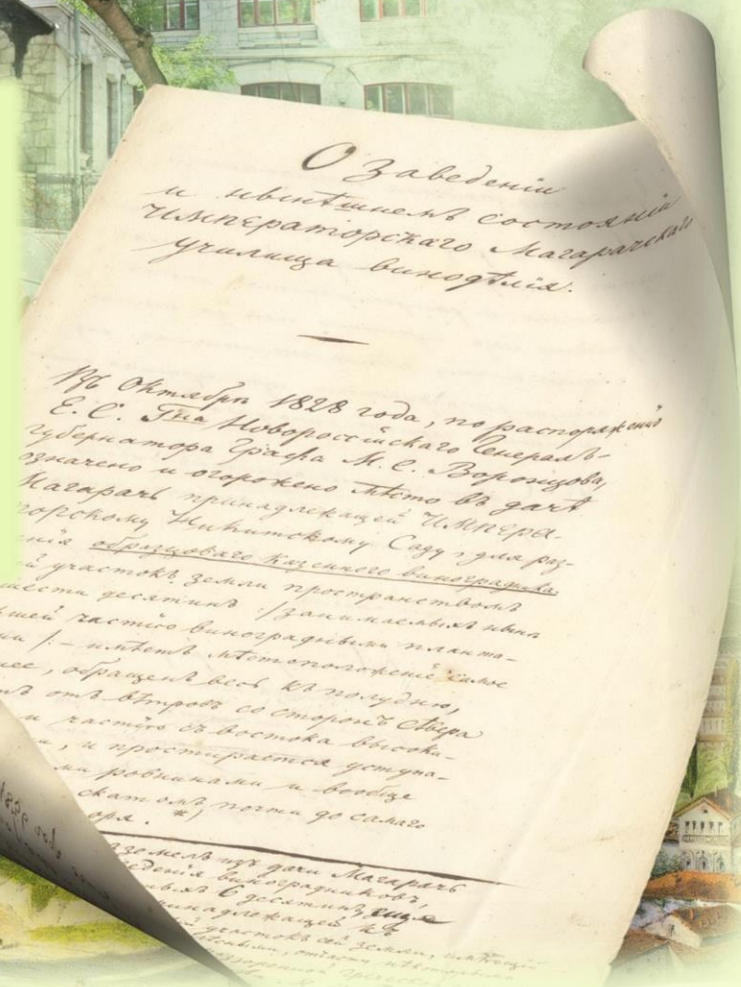 О Заведеніи
и нынѣшнемъ состояніи
Императорскаго Магарачскаго
Училища винодѣлія.
Въ Октябрѣ 1828 года, по распоряженію
Е. С. Гна Новороссійскаго Генералъ-
губернатора Графа М. С. Воронцова,
означено и огорожено мѣсто въ дачѣ
Магарачь принадлежащей Импера-
торскому Никитскому Саду, для раз-
нія образцоваго казеннаго виноградника.
й участокъ земли пространствомъ
шести десятинъ /: занимаемыхъ нынѣ
шей частію виноградными планта-
ми /: - имѣетъ мѣстоположеніе самое
нее, обращенъ весь къ полудню,
отъ вѣтровъ со сторонъ Сѣвера
и частію съ востока высоки-
, и простирается уступа-
ми ровнинами и вообще
скатомъ почти до самаго
оря. *)
земель изъ дачи Магарачь
ведения виноградниковъ,
6 десятинъ, еще
принадлежащей къ
участокъ сей земли, имѣющій